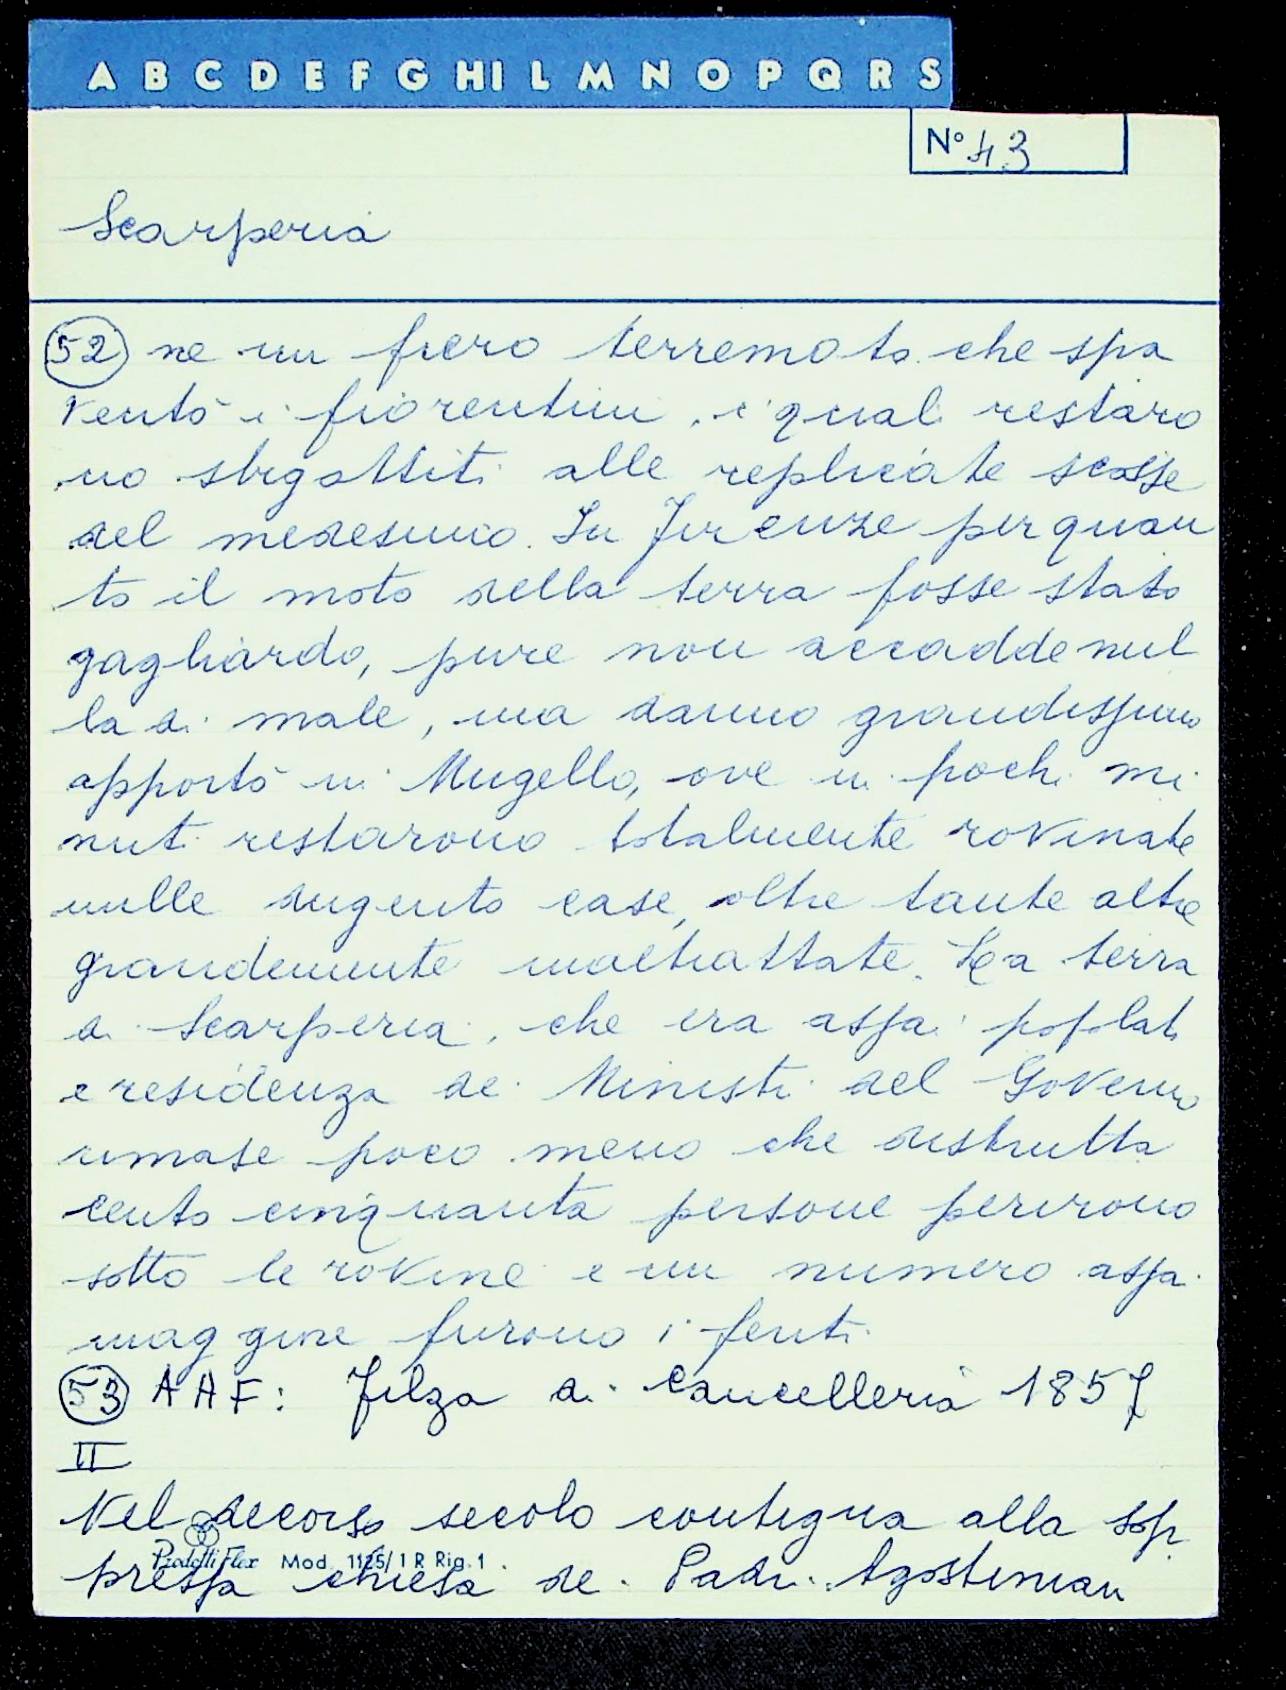 A B C D E F G HI L M N O P Q R S
N° 43
Scarperia
52 ne un fiero terremoto che spa
ventò i fiorentini, i quali restaro
no sbigottiti alle replicate scosse
del medesimo. In Firenze per quan
to il moto della terra fosse stato
gagliardo, pure non accadde nul
la di male, ma danno grandissimo
apportò in Mugello, ove in pochi mi
nuti restarono totalmente rovinate
mille dugento case, oltre tante altre
grandemente maltrattate. La terra
di Scarperia, che era assai popolat
e residenza de' Ministri del Governo
rimase poco meno che distrutta
cento cinquanta persone perirono
sotto le rovine e un numero assai
maggiore furono i feriti
53 AAF: Filza di Cancelleria 1857
II
Nel decorso secolo contigua alla sop
Prodotti Flex Mod. 1125/1 R Rig. 1
pressa chiesa de' Padri Agostinian